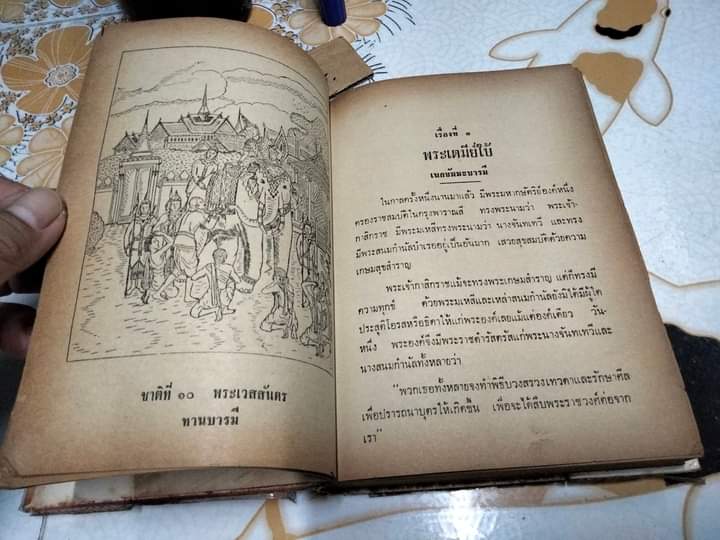 ชาติที่ ๑๐ พระเวสสันดร
ทานบารมี
เรื่องที่ ๑
พระเตมีย์ใบ้
เนกขัมมะบารมี
ในกาลครั้งหนึ่งนานมาแล้ว มีพระมหากษัตริย์องค์หนึ่ง
ครองราชสมบัติในกรุงพาราณสี ทรงพระนามว่า พระเจ้า-
กาสิกราช มีพระมเหสีทรงพระนามว่า นางจันทเทวี และทรง
มีพระสนมกำนัลบำเรออยู่เป็นอันมาก เสวยสุขสมบัติด้วยความ
เกษมสุขสำราญ
พระเจ้ากาสิกราชแม้จะทรงพระเกษมสำราญ แต่ก็ทรงมี
ความทุกข์ ด้วยพระมเหสีและเหล่าสนมกำนัลยังมิได้มีผู้ใด
ประสูติโอรสหรือธิดาให้แก่พระองค์เลยแม้แต่องค์เดียว วัน-
หนึ่ง พระองค์จึงมีพระราชดำรัสตรัสแก่พระนางจันทเทวีและ
นางสนมกำนัลทั้งหลายว่า
"พวกเธอทั้งหลายจงทำพิธีบวงสรวงเทวดาและรักษาศีล
เพื่อปรารถนาบุตรให้เกิดขึ้น เพื่อจะได้สืบพระราชวงศ์ต่อจาก
เรา"